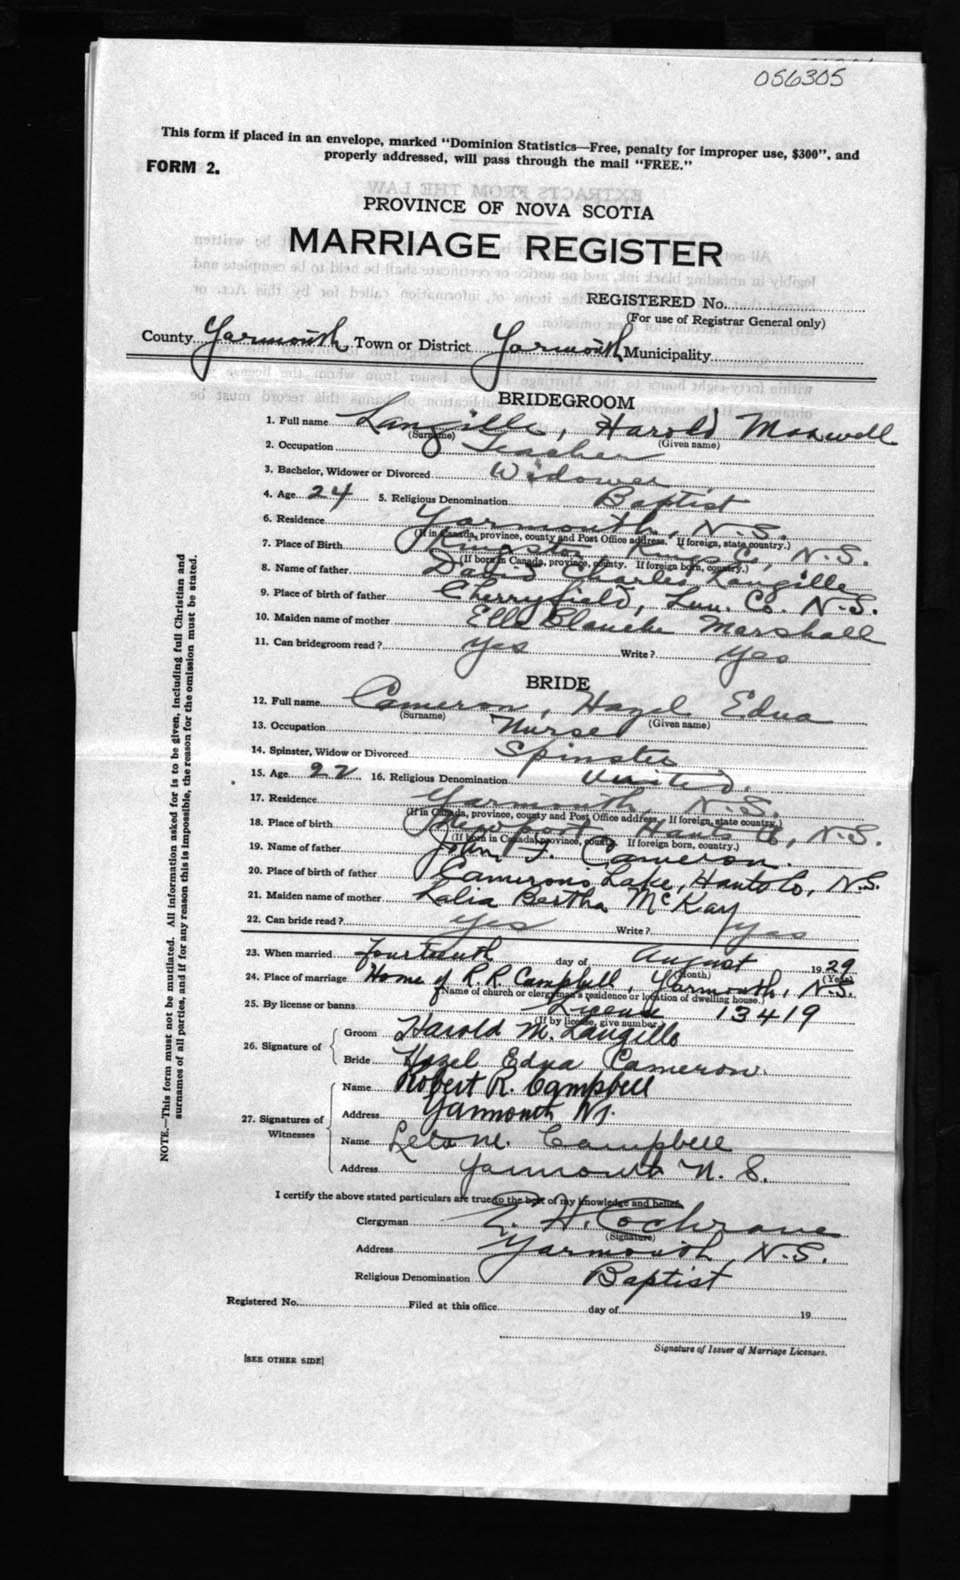 056305
This form if placed in an envelope, marked "Dominion Statistics—Free, penalty for improper use, $300", and
properly addressed, will pass through the mail "FREE."
FORM 2.
PROVINCE OF NOVA SCOTIA
MARRIAGE REGISTER
REGISTERED No.
(For use of Registrar General only)
County Yarmouth Town or District Yarmouth Municipality
BRIDEGROOM
1. Full name Langille, Harold Maxwell
(Surname) (Given name)
2. Occupation Teacher
3. Bachelor, Widower or Divorced Widower
4. Age 24 5. Religious Denomination Baptist
6. Residence Yarmouth, N.S.
(If in Canada, province, county and Post Office address. If foreign, state country.)
7. Place of Birth Kingston, Kings Co, N.S.
(If born in Canada, province, county. If foreign born, country.)
8. Name of father David Charles Langille
9. Place of birth of father Cherryfield, Lun. Co. N.S.
10. Maiden name of mother Ella Blanche Marshall
11. Can bridegroom read? Yes Write? Yes
BRIDE
12. Full name Cameron, Hazel Edna
(Surname) (Given name)
13. Occupation Nurse
14. Spinster, Widow or Divorced Spinster
15. Age 22 16. Religious Denomination United.
17. Residence Yarmouth, N.S.
(If in Canada, province, county and Post Office address. If foreign, state country.)
18. Place of birth Newport Hants Co, N.S.
(If born in Canada, province, county. If foreign born, country.)
19. Name of father John F. Cameron.
20. Place of birth of father Camerons Lake, Hants Co, N.S.
21. Maiden name of mother Lalia Bertha McKay
22. Can bride read? Yes Write? Yes
23. When married fourteenth day of August 1929
(Month) (Year)
24. Place of marriage Home of R.R. Campbell, Yarmouth, N.S.
(Name of church or clergyman's residence or location of dwelling house.)
25. By license or banns License 13419
(If by license, give number)
26. Signature of
Groom Harold M. Langille
Bride Hazel Edna Cameron.
27. Signatures of Witnesses
Name Robert R. Campbell
Address Yarmouth NS.
Name Leta M. Campbell
Address Yarmouth N. S.
I certify the above stated particulars are true to the best of my knowledge and belief.
Clergyman H. Cochrane
(Signature)
Address Yarmouth N.S.
Religious Denomination Baptist
Registered No. Filed at this office day of 19
Signature of Issuer of Marriage Licenses.
[SEE OTHER SIDE]
NOTE.—This form must not be mutilated. All information asked for is to be given, including full Christian and
surnames of all parties, and if for any reason this is impossible, the reason for the omission must be stated.